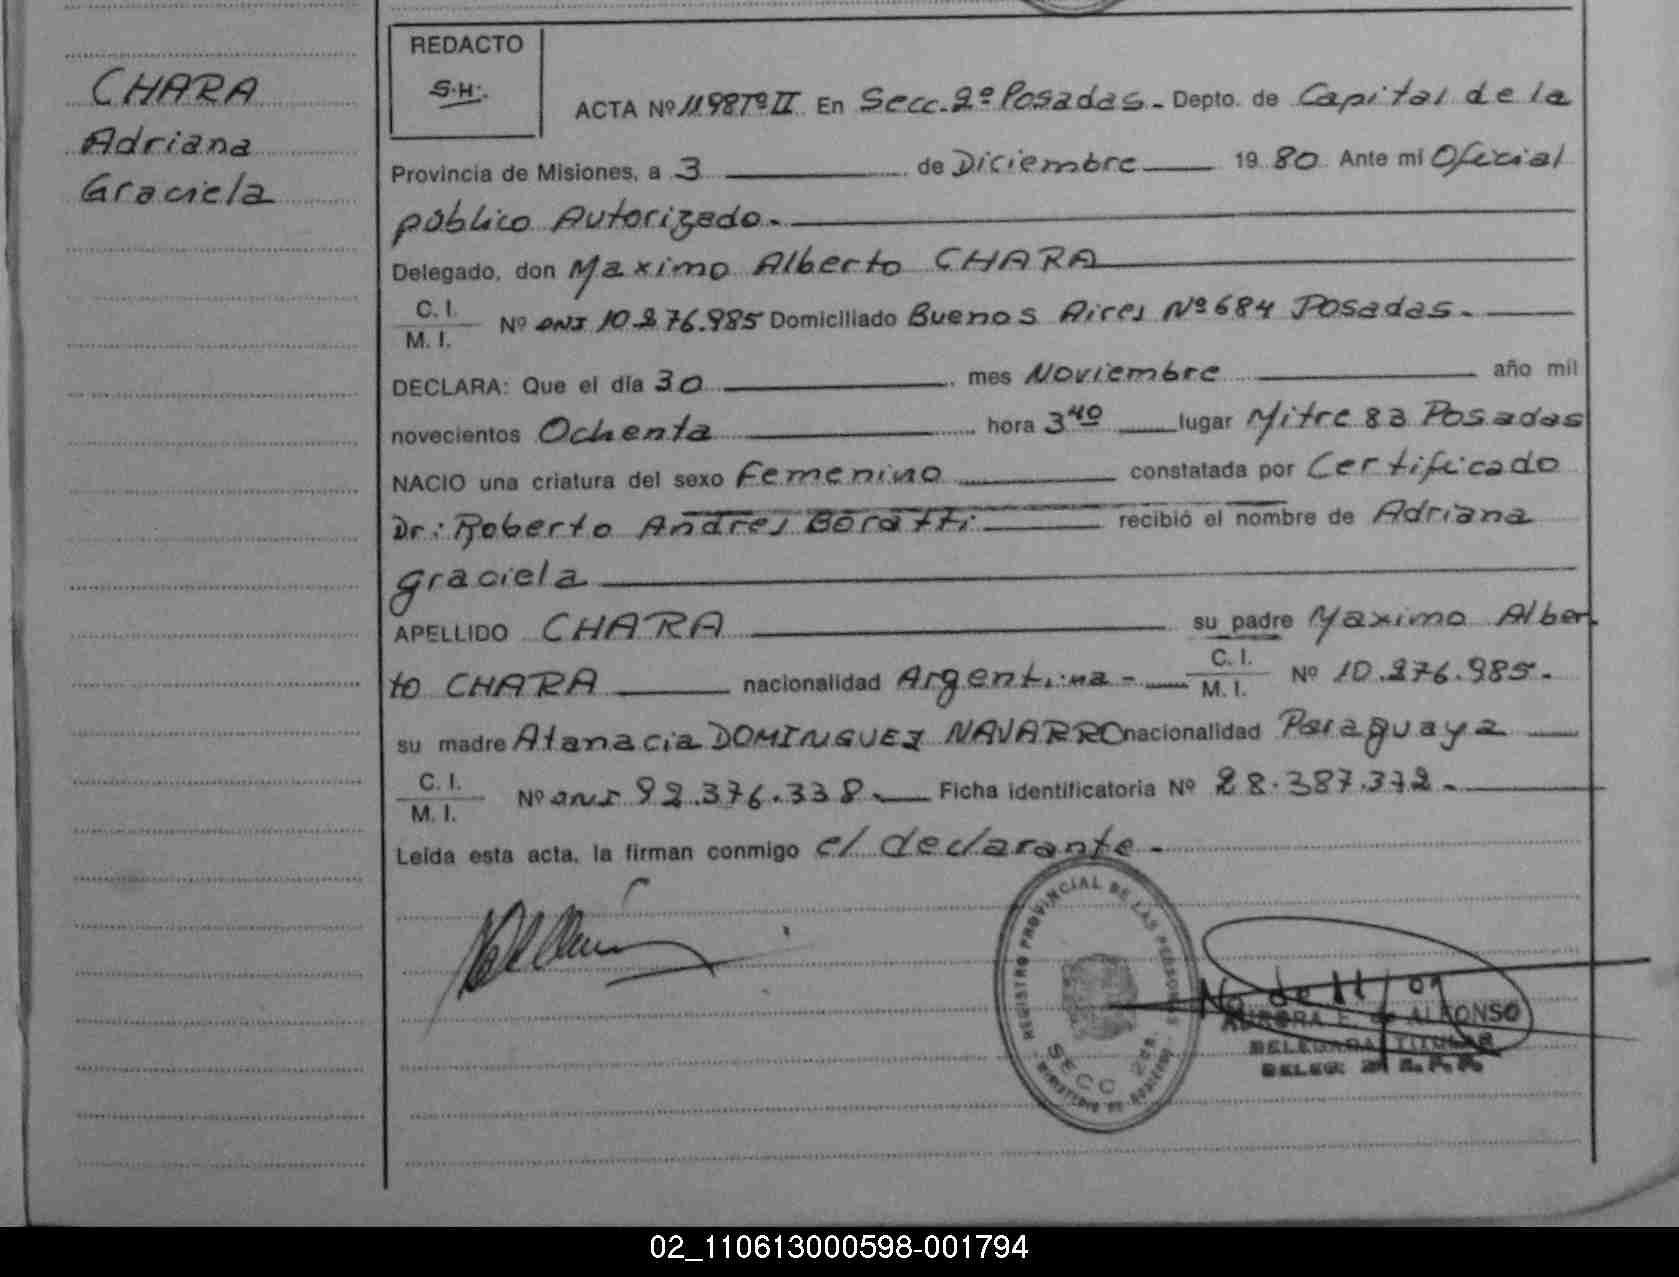 CHARA
Adriana
Graciela
REDACTO
S.H.
ACTA Nº 1198 Tº II En Secc. 2º Posadas.- Depto. de Capital de la
Provincia de Misiones, a 3 de Diciembre 19 80 Ante mi Oficial
público Autorizado.-
Delegado, don Maximo Alberto CHARA
C. I.
M. I. Nº DNI 10.276.985 Domiciliado Buenos Aires Nº 684 Posadas.-
DECLARA: Que el día 30 mes Noviembre año mil
novecientos Ochenta hora 3 40 lugar Mitre 83 Posadas
NACIO una criatura del sexo Femenino constatada por Certificado
Dr: Roberto Andres Boratti recibió el nombre de Adriana
graciela
APELLIDO CHARA su padre Maximo Alber
to CHARA nacionalidad Argentina - C. I. M. I. Nº 10.276.985.
su madre Atanacia DOMINGUEZ NAVARRO nacionalidad Paraguaya
C. I.
M. I. Nº DNI 92.376.338.- Ficha identificatoria Nº 28.387.372.-
Leída esta acta, la firman conmigo el declarante.-
REGISTRO PROVINCIAL DE LAS PERSONAS
SECC 2da.
MINISTERIO DE GOBIERNO
AURORA E. de ALFONSO
DELEGADA TITULAR
DELEG. 2ª R.P.P.
02_110613000598-001794